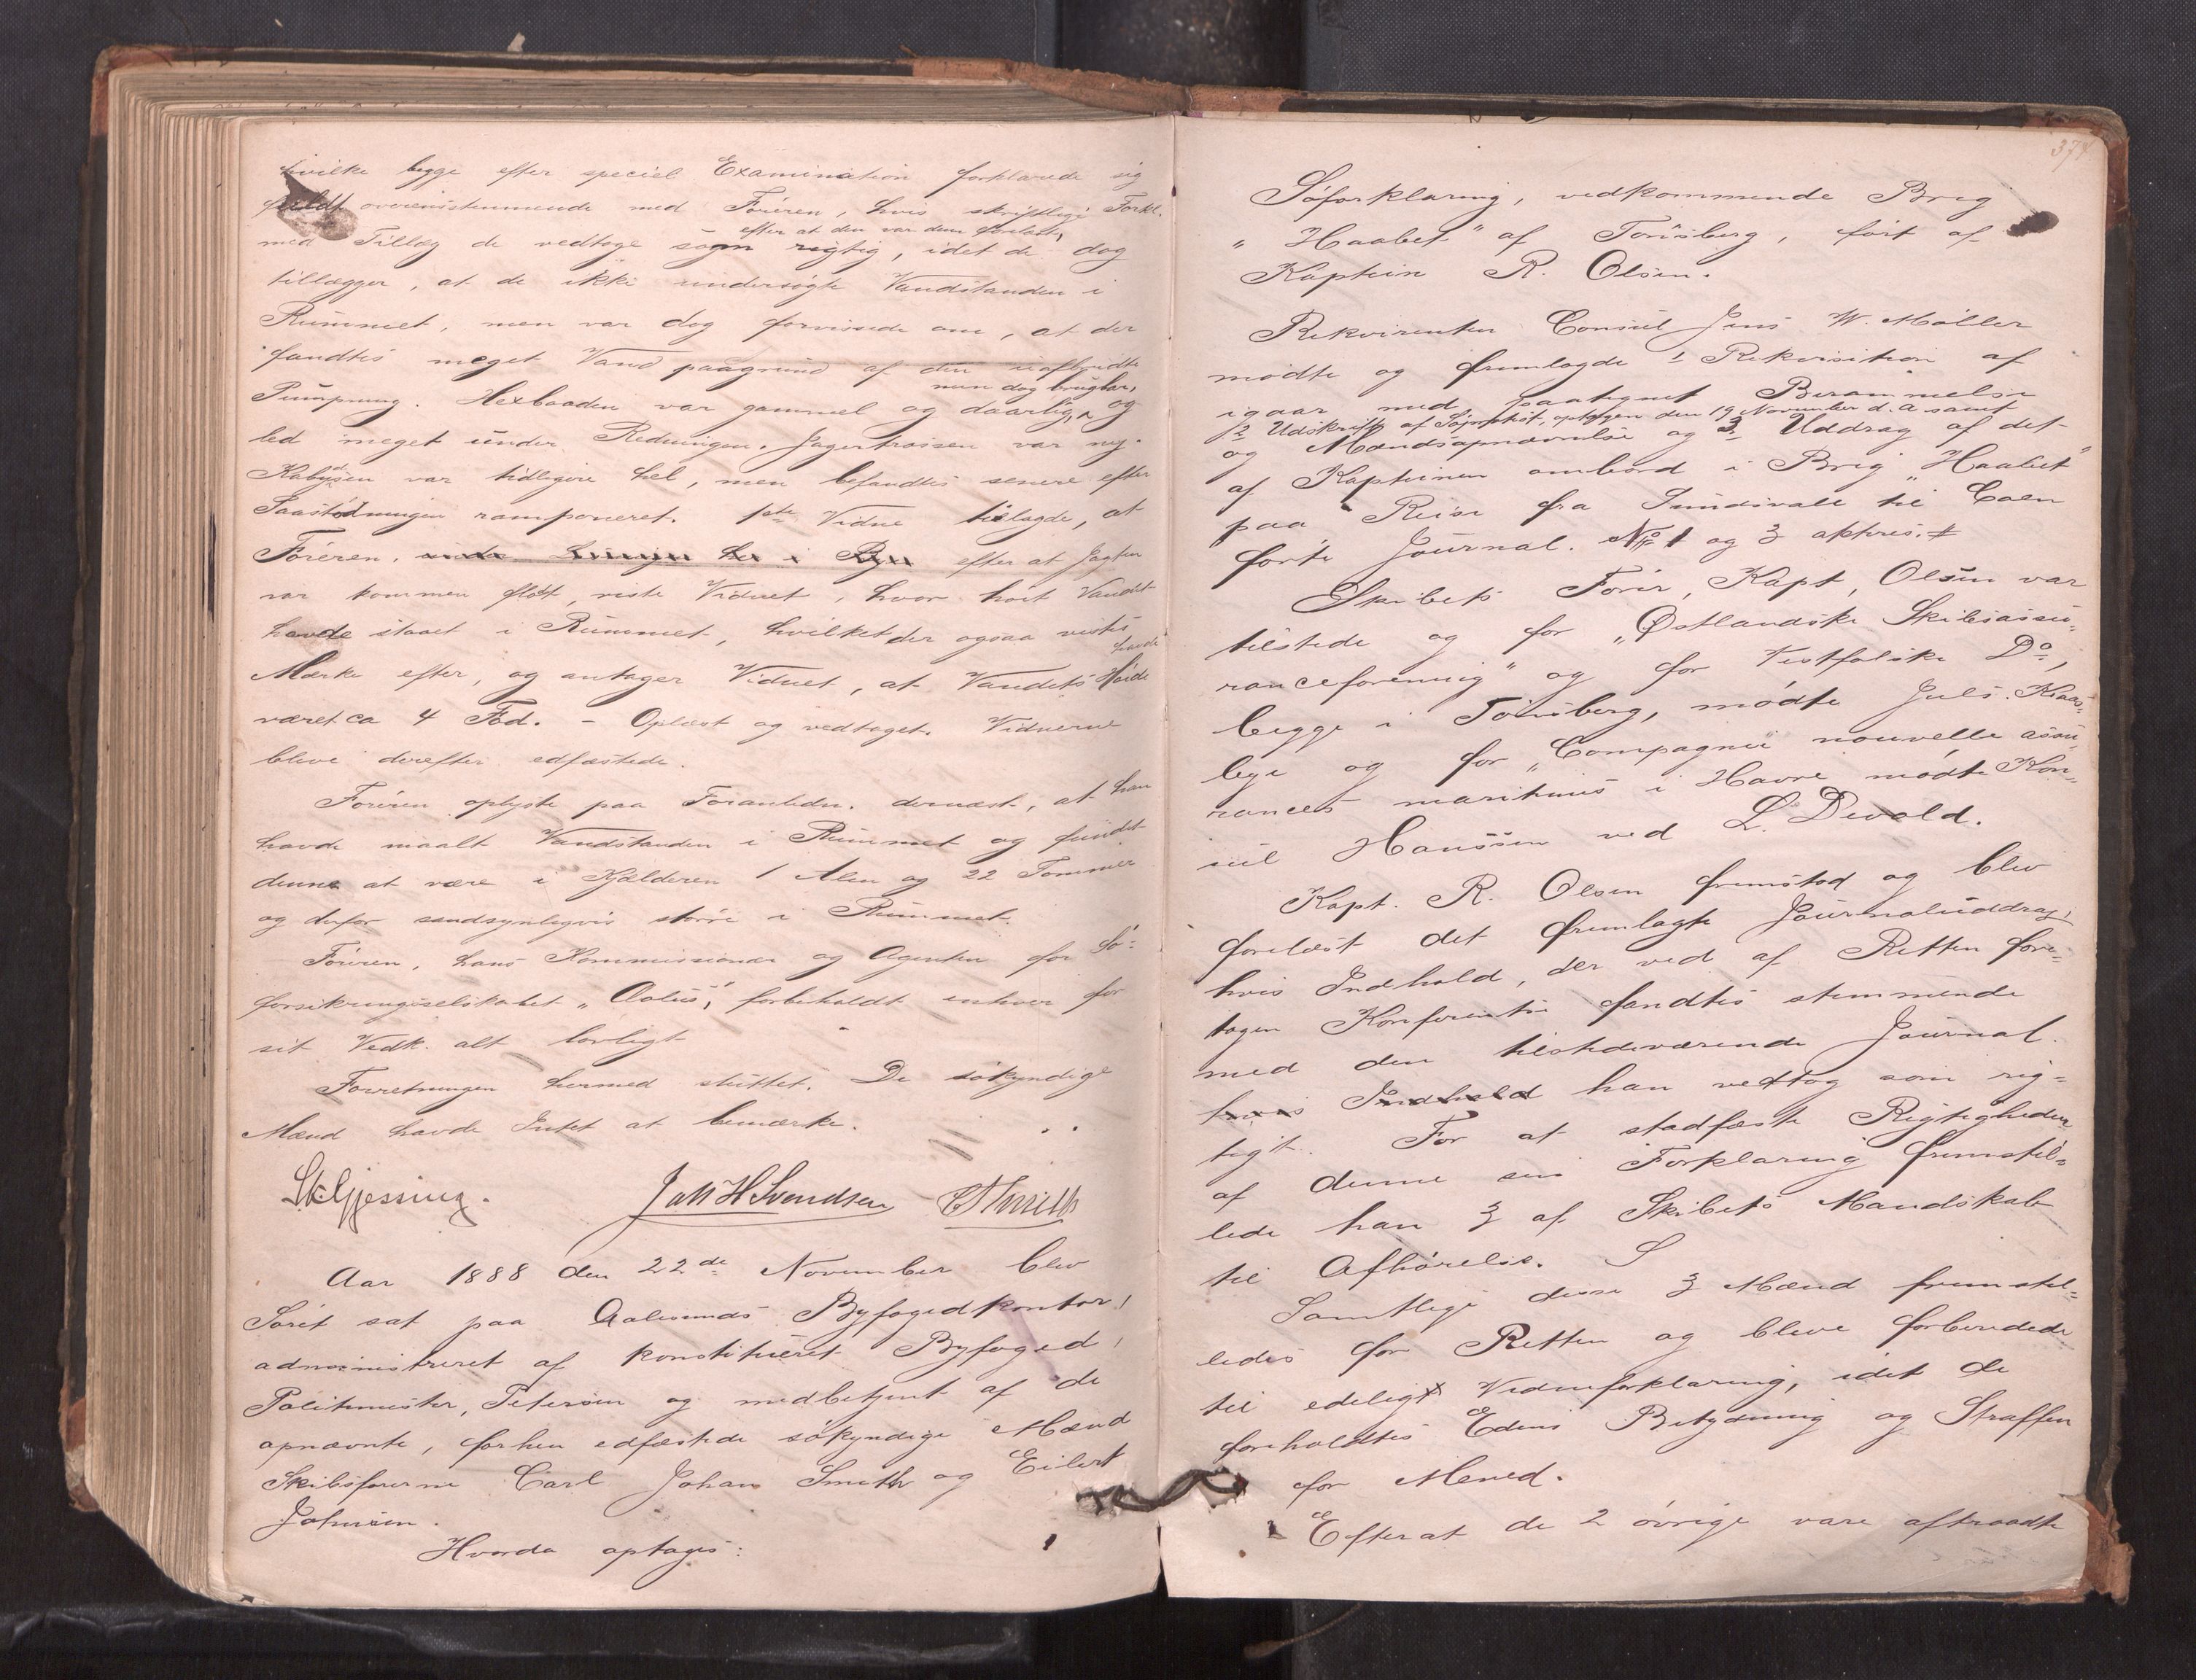 hvilke begge efter speciel Examination forklarede sig
fuldt overensstemmende med Føreren, hvis skriftlige Forkl.
efter at den var dem forelæst,
med Tillæg de vedtoge som rigtig, idet de dog
tillægger, at de ikke undersøgte Vandstanden i
Rummet, men var dog forvissede om, at der
fandtes meget Vand paagrund af den uafbrudte
men dog brugbar,
Pumpning. Hexbaaden var gammel og daarlig, og
led meget under Redningen. Jagertrossen var ny.
Kabysen var tidligere hel, men befandtes senere efter
Paastødningen ramponeret. 1ste Vidne tillagde, at
Føreren, efter at Jagten
var kommen fløt, viste Vidnet, hvor høit Vandet
havde staaet i Rummet, hvilket der ogsaa vistes
havde
Mærke efter, og antager Vidnet, at Vandets Høide
været ca 4 Fod. - Oplæst og vedtaget. Vidnerne
bleve derefter edfæstede.
Føreren oplyste paa Foranledn. dernæst, at han
havde maalt Vandstanden i Rummet og fundet
denne at være i Kjælderen 1 Alen og 22 Tommer
og derfor sandsynligvis større i Rummet.
Føreren, hans Kommissionær og Agenten for Sø-
forsikringsselskabet "Æolus", forbeholdt enhver for
sit Vedk. alt lovligt
Forretningen hermed sluttet. De søkyndige
Mænd havde Intet at bemærke.
SkGjessing. Jatt H Svendsen CJSmith
Aar 1888 den 22de November blev
Søret sat paa Aalesunds Byfogedkontor,
administreret af konstitueret Byfoged,
Politimester, Petersen og medbetjent af de
opnævnte, forhen edfæstede søkyndige Mænd
Skibsførerne Carl Johan Smith og Eilert
Johnsen.
Hvorda optoges:
374
Søforklaring, vedkommende Brig
"Haabet" af Tønsberg, ført af
Kaptein R. Olsen.
Rekvirenten Consul Jens W. Møller
mødte og fremlagde 1 Rekvisition af
igaar med paategnet Berammelse
2 Udskrift af Søprotest, optagen den 19 November d.A samt
og Mandsopnævnelse og 3 Uddrag af det
af Kapteinen ombord i Brig "Haabet"
paa Reise fra Sundsvall til Caen
førte Journal. No 1 og 3 aktres. #
Skibets Fører, Kapt, Olsen var
tilstede og for "Østlandske Skibsassu-
ranceforening" og for Vestfolske Do,
begge i Tønsberg, mødte Juls. Klaas-
bye og for "Compagnie nouvelle assu-
rances maritimes i Havre mødte Kon-
sul Hanssen ved L. Devold.
Kapt. R. Olsen fremstod og blev
forelæst det fremlagte Journaluddrag,
hvis Indhold, der ved af Retten fore-
tagen Konferentse fandtes stemmende
med den tilstedeværende Journal.
hvis Indhold han vedtog som rig-
tigt. For at stadfæste Rigtigheden
af denne sin Forklaring fremstil-
lede han 3 af Skibets Mandskab
til Afhørelse. S
Samtlige disse 3 Mænd fremstil-
ledes for Retten og bleve forberedede
til edeligt Vidneforklaring, idet de
foreholdtes Edens Betydning og Straffen
for Mened.
Efterat de 2 øvrige vare aftraadte